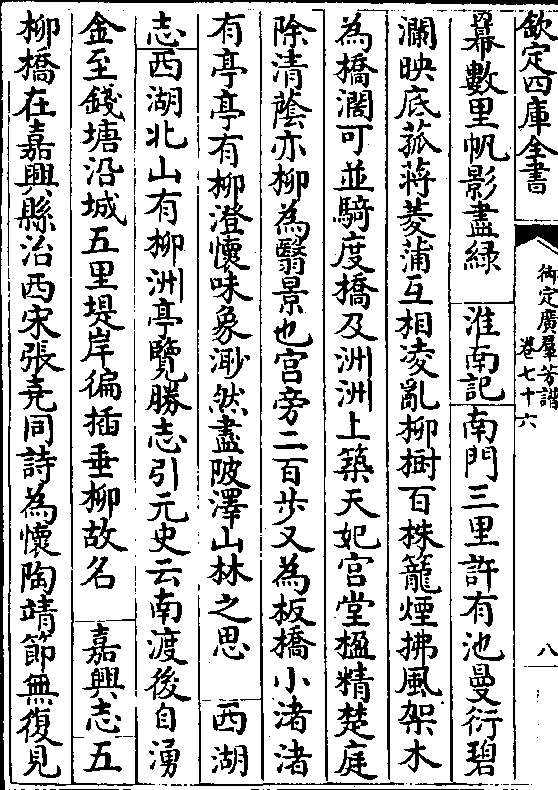 欽定四庫全書
御定廣羣芳譜
卷七十六
八
幕數里帆影盡緑　淮南記南門三里許有池曼衍碧
瀾映底菰蔣菱蒲互相凌亂柳樹百株籠煙拂風架木
為橋濶可並騎度橋及洲洲上築天妃宫堂楹精楚庭
除清蔭亦柳為翳景也宫旁二百步又為板橋小渚渚
有亭亭有柳澄懷味象渺然盡陂澤山林之思　西湖
志西湖北山有柳洲亭覽勝志引元史云南渡後自湧
金至錢塘沿城五里堤岸徧插垂柳故名　嘉興志五
柳橋在嘉興縣治西宋張堯同詩為懷陶靖節無復見